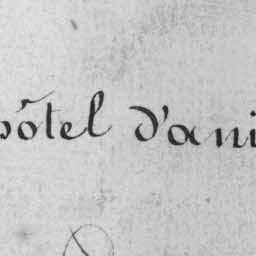 hôtel d'ani